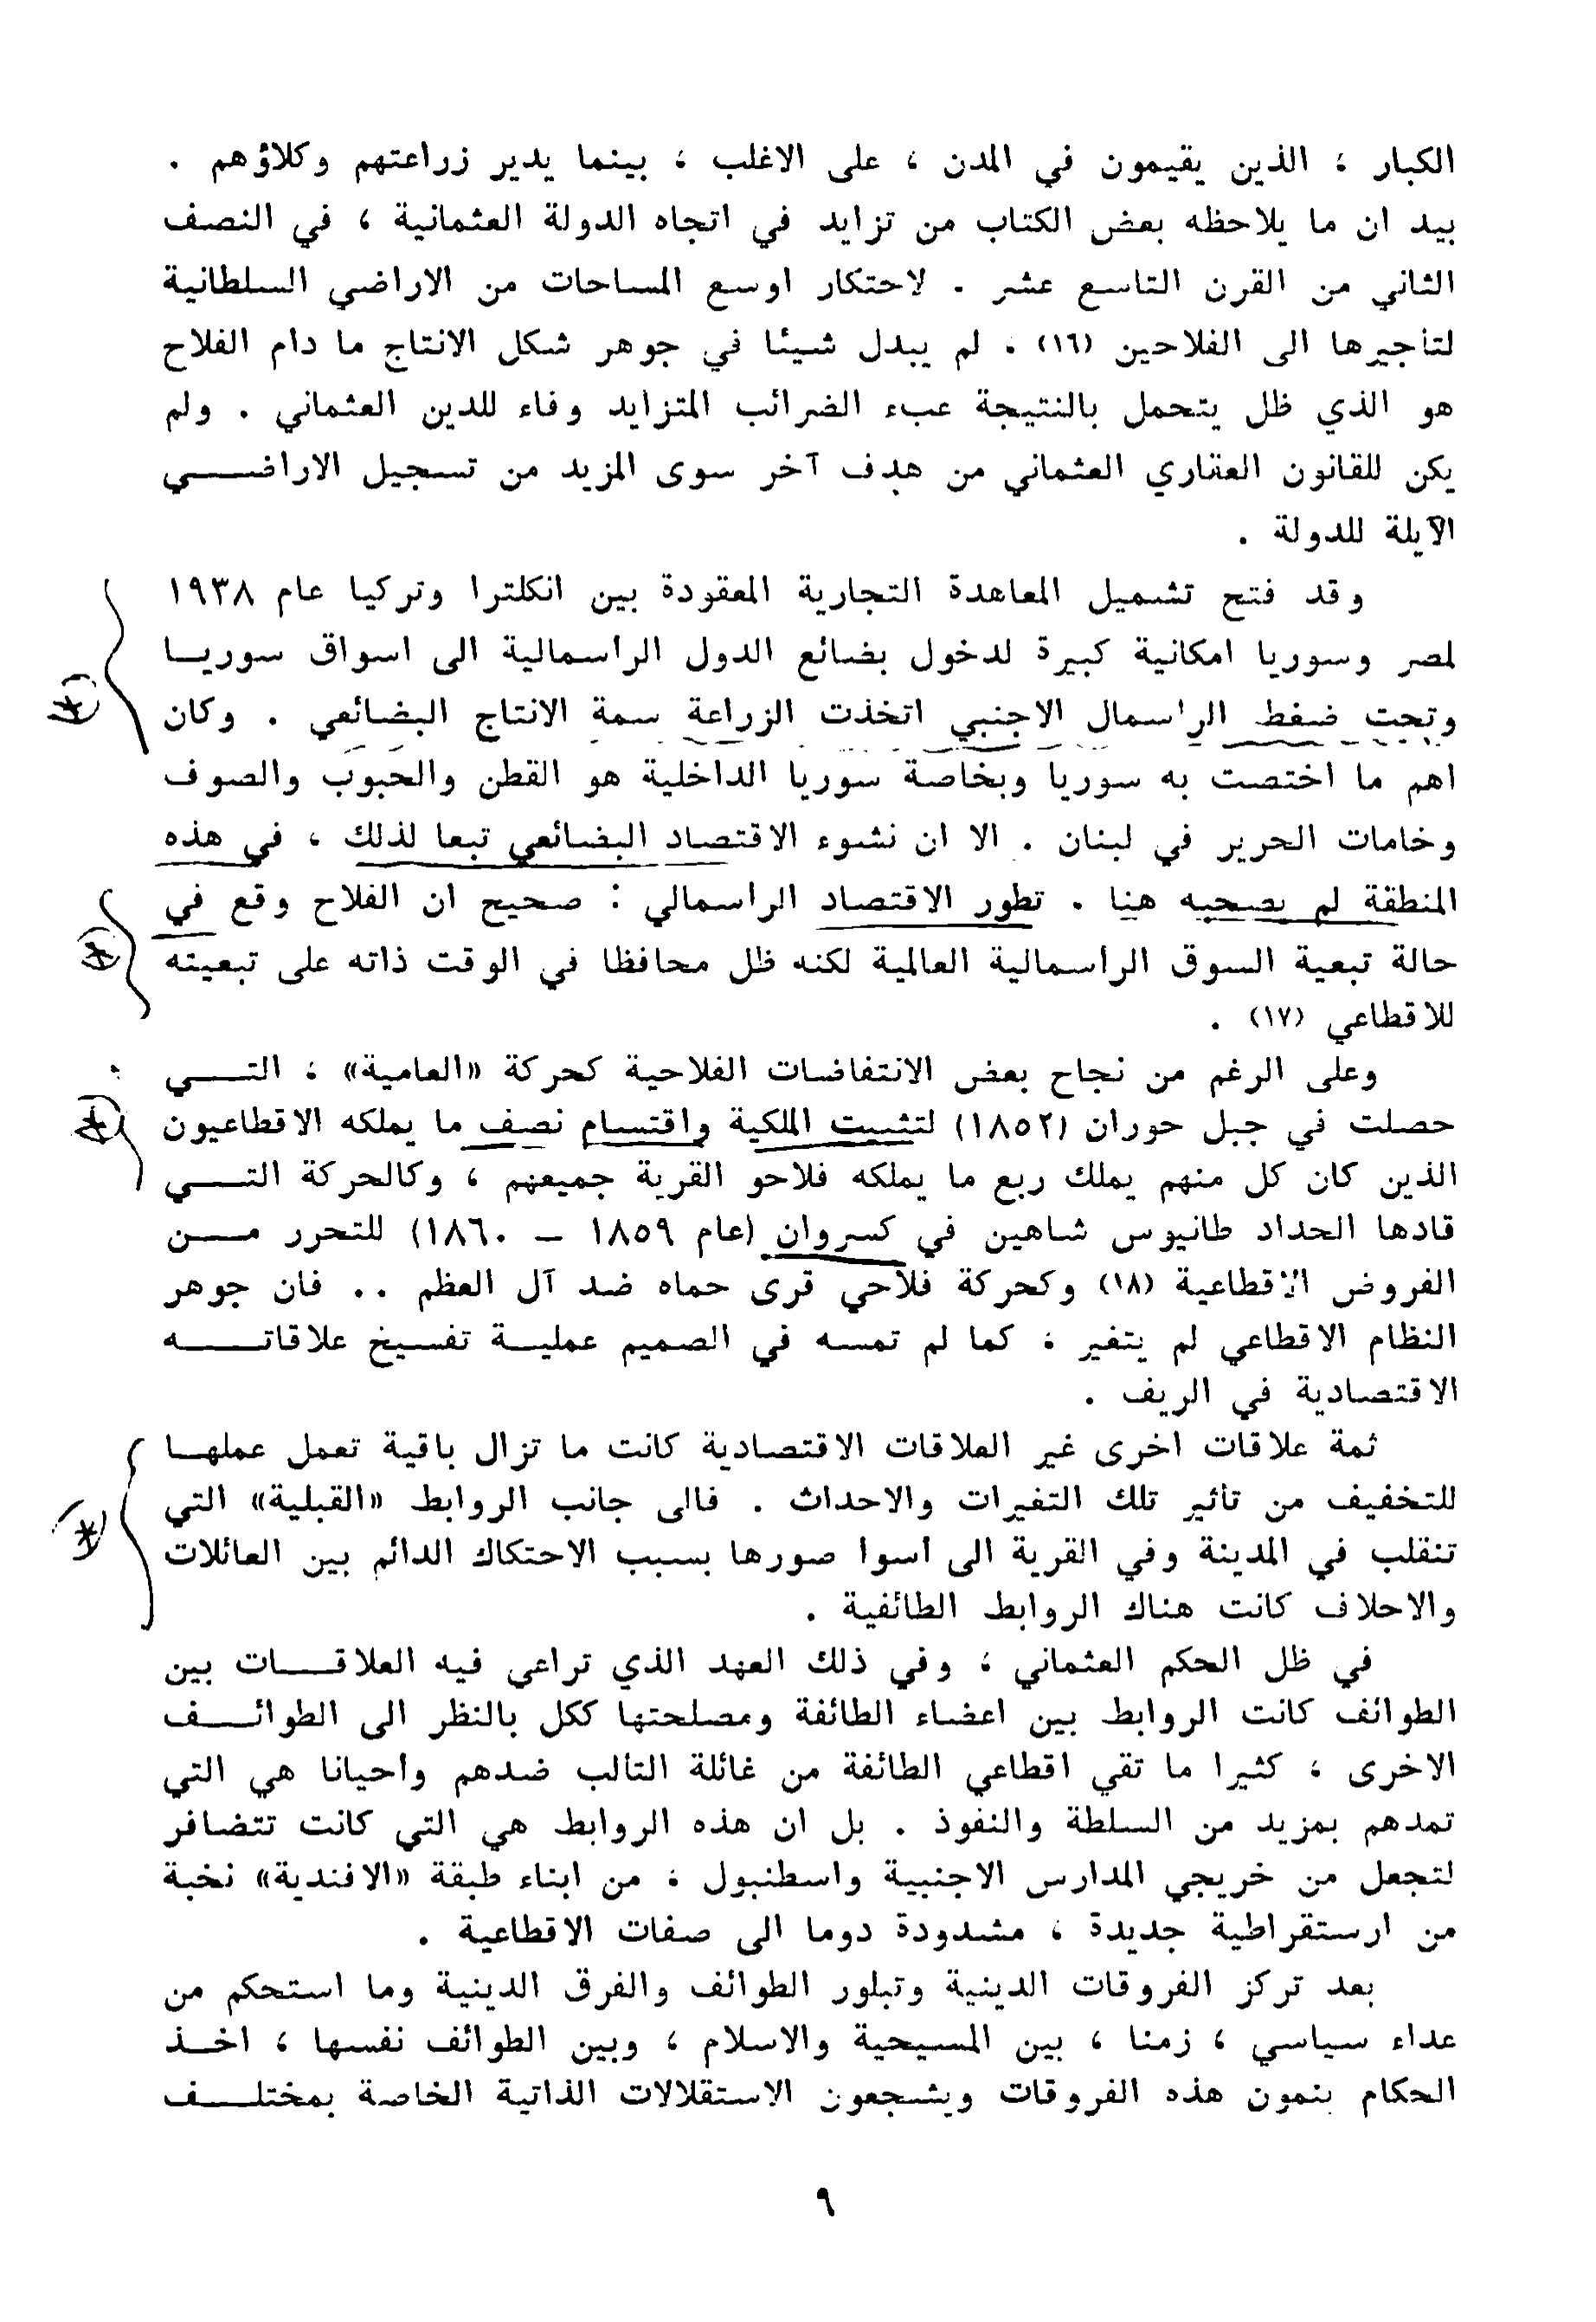 الكبار ، الذين يقيمون في المدن ، على الاغلب ، بينما يدير زراعتهم وكلاؤهم .
بيد ان ما يلاحظه بعض الكتاب من تزايد في اتجاه الدولة العثمانية ، في النصف
الثاني من القرن التاسع عشر . لاحتكار اوسع المساحات من الاراضي السلطانية
لتأجيرها الى الفلاحين (١٦) . لم يبدل شيئا في جوهر شكل الانتاج ما دام الفلاح
هو الذي ظل يتحمل بالنتيجة عبء الضرائب المتزايد وفاء للدين العثماني . ولم
يكن للقانون العقاري العثماني من هدف آخر سوى المزيد من تسجيل الاراضي
الآيلة للدولة .
وقد فتح تشميل المعاهدة التجارية المعقودة بين انكلترا وتركيا عام ١٩٣٨
لمصر وسوريا امكانية كبيرة لدخول بضائع الدول الرأسمالية الى اسواق سوريا
وتحت ضغط الرأسمال الاجنبي اتخذت الزراعة سمة الانتاج البضائعي . وكان
اهم ما اختصت به سوريا وبخاصة سوريا الداخلية هو القطن والحبوب والصوف
وخامات الحرير في لبنان . الا ان نشوء الاقتصاد البضائعي تبعا لذلك ، في هذه
المنطقة لم يصحبه هنا . تطور الاقتصاد الراسمالي : صحيح ان الفلاح وقع في
حالة تبعية السوق الرأسمالية العالمية لكنه ظل محافظا في الوقت ذاته على تبعيته
للاقطاعي (١٧) .
وعلى الرغم من نجاح بعض الانتفاضات الفلاحية كحركة «العامية» ، التي
حصلت في جبل حوران (١٨٥٢) لتثبيت الملكية واقتسام نصف ما يملكه الاقطاعيون
الذين كان كل منهم يملك ربع ما يملكه فلاحو القرية جميعهم ، وكالحركة التي
قادها الحداد طانيوس شاهين في كسروان (عام ١٨٥٩ – ١٨٦٠) للتحرر من
الفروض الاقطاعية (١٨) وكحركة فلاحي قرى حماه ضد آل العظم .. فان جوهر
النظام الاقطاعي لم يتغير ، كما لم تمسه في الصميم عملية تفسيخ علاقاته
الاقتصادية في الريف .
ثمة علاقات اخرى غير العلاقات الاقتصادية كانت ما تزال باقية تعمل عملها
للتخفيف من تأثير تلك التغيرات والاحداث . فالى جانب الروابط «القبلية» التي
تنقلب في المدينة وفي القرية الى أسوا صورها بسبب الاحتكاك الدائم بين العائلات
والاحلاف كانت هناك الروابط الطائفية .
في ظل الحكم العثماني ، وفي ذلك العهد الذي تراعى فيه العلاقات بين
الطوائف كانت الروابط بين اعضاء الطائفة ومصلحتها ككل بالنظر الى الطوائف
الاخرى ، كثيرا ما تقي اقطاعي الطائفة من غائلة التألب ضدهم وأحيانا هي التي
تمدهم بمزيد من السلطة والنفوذ . بل ان هذه الروابط هي التي كانت تتضافر
لتجعل من خريجي المدارس الاجنبية واسطنبول ، من ابناء طبقة «الافندية» نخبة
من ارستقراطية جديدة ، مشدودة دوما الى صفات الاقطاعية .
بعد تركز الفروقات الدينية وتبلور الطوائف والفرق الدينية وما استحكم من
عداء سياسي ، زمنا ، بين المسيحية والاسلام ، وبين الطوائف نفسها ، اخذ
الحكام ينمون هذه الفروقات ويشجعون الاستقلالات الذاتية الخاصة بمختلف
٩